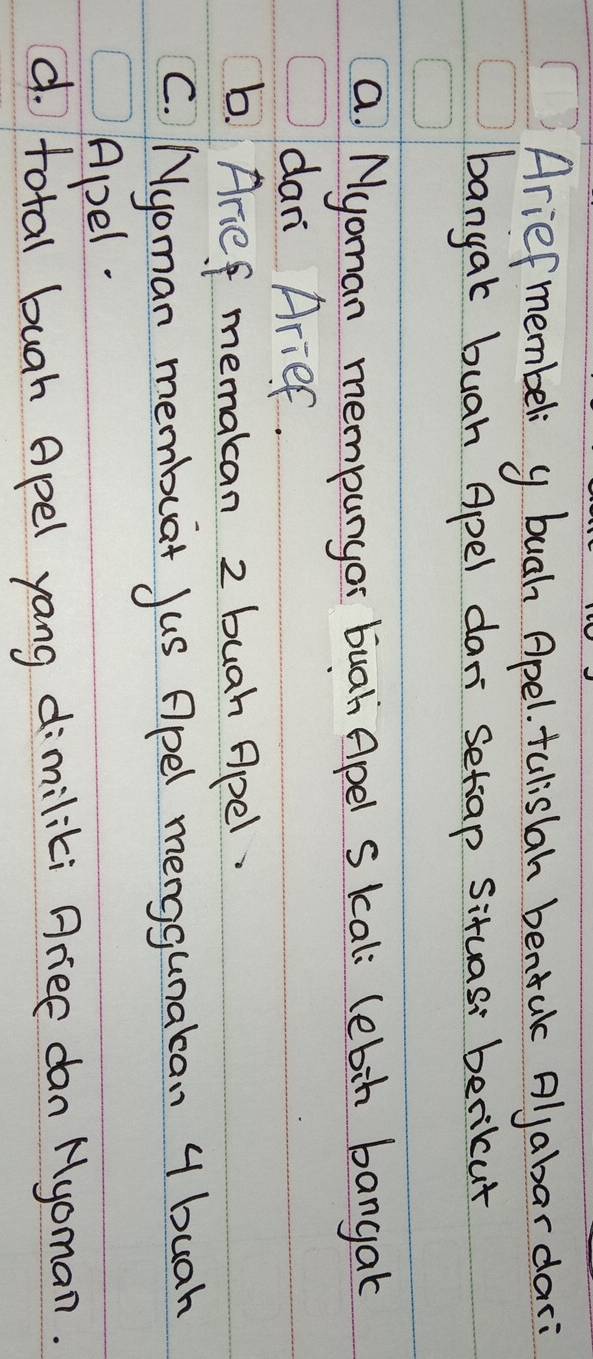 Arief membeli y buah Apel. tulislah bentuk Aljabar dari
banyak buah Apel dari setiap situasi berikut
a. Nyoman mempunyai buah Apel 5 kali lebih banyak
dari Arief.
b. Arief memakan 2 buah Apel.
c. Nyoman membuat jus Apel menggunakan 4 buah
Apel.
d. total buah Apel yang dimiliki Arief dan Nyoman.